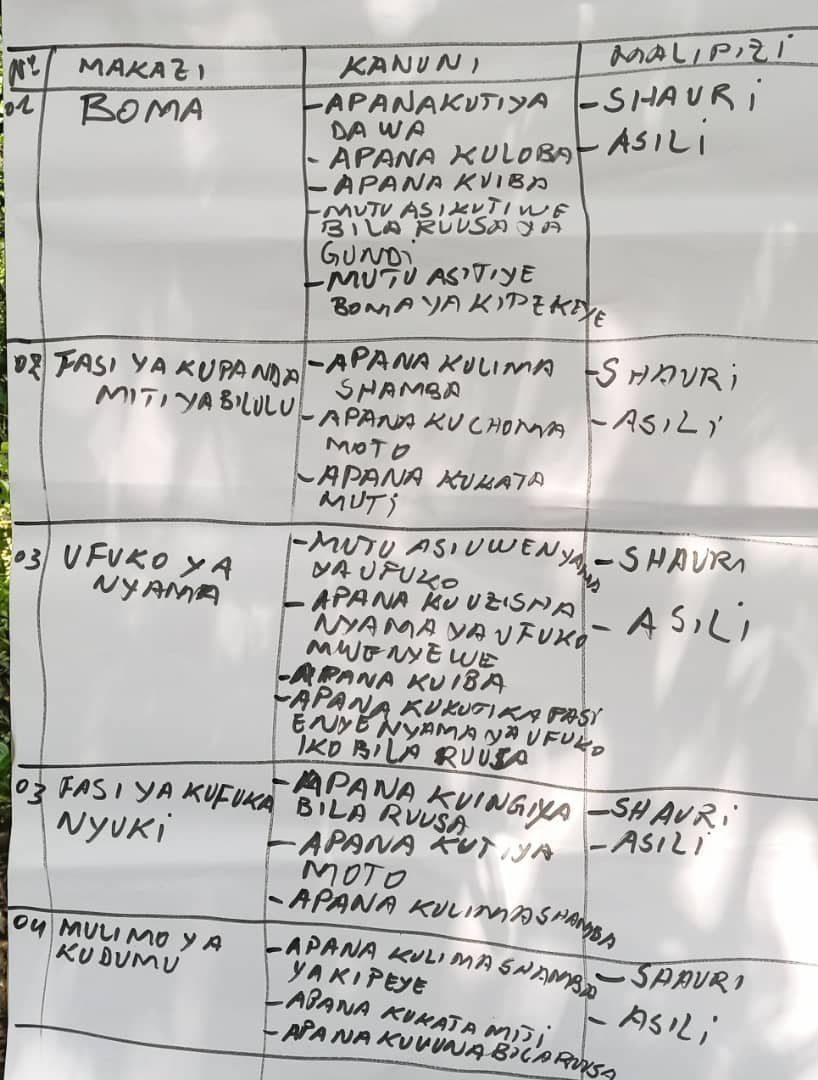 Nº MAKAZI KANUNI MALIPIZI
01 BOMA
- APANA KUTIYA
DAWA
- APANA KULOBA
- APANA KUIBA
- MUTU ASIKUTIWE
BILA RUUSA YA
GUNDI
- MUTU ASITIYE
BOMA YA KIPEKEYE
- SHAURI
- ASILI
02 FASI YA KUPANDA
MITI YA BILULU
- APANA KULIMA
SHAMBA
- APANA KUCHOMA
MOTO
- APANA KUKATA
MUTI
- SHAURI
- ASILI
03 UFUKO YA
NYAMA
- MUTU ASIUWE NYAMA
YA UFUKO
- APANA KUUZISHA
NYAMA YA UFUKO
MWENYEWE
- APANA KUIBA
- APANA KUKUTIKA FASI
ENYE NYAMA YA UFUKO
IKO BILA RUUSA
- SHAURI
- ASILI
03 FASI YA KUFUKA
NYUKI
- APANA KUINGIYA
BILA RUUSA
- APANA KUTIYA
MOTO
- APANA KULIMA SHAMBA
- SHAURI
- ASILI
04 MULIMO YA
KUDUMU
- APANA KULIMA SHAMBA
YA KIPEYE
- APANA KUKATA MITI
- APANA KUVUNA BILA RUUSA
- SHAURI
- ASILI